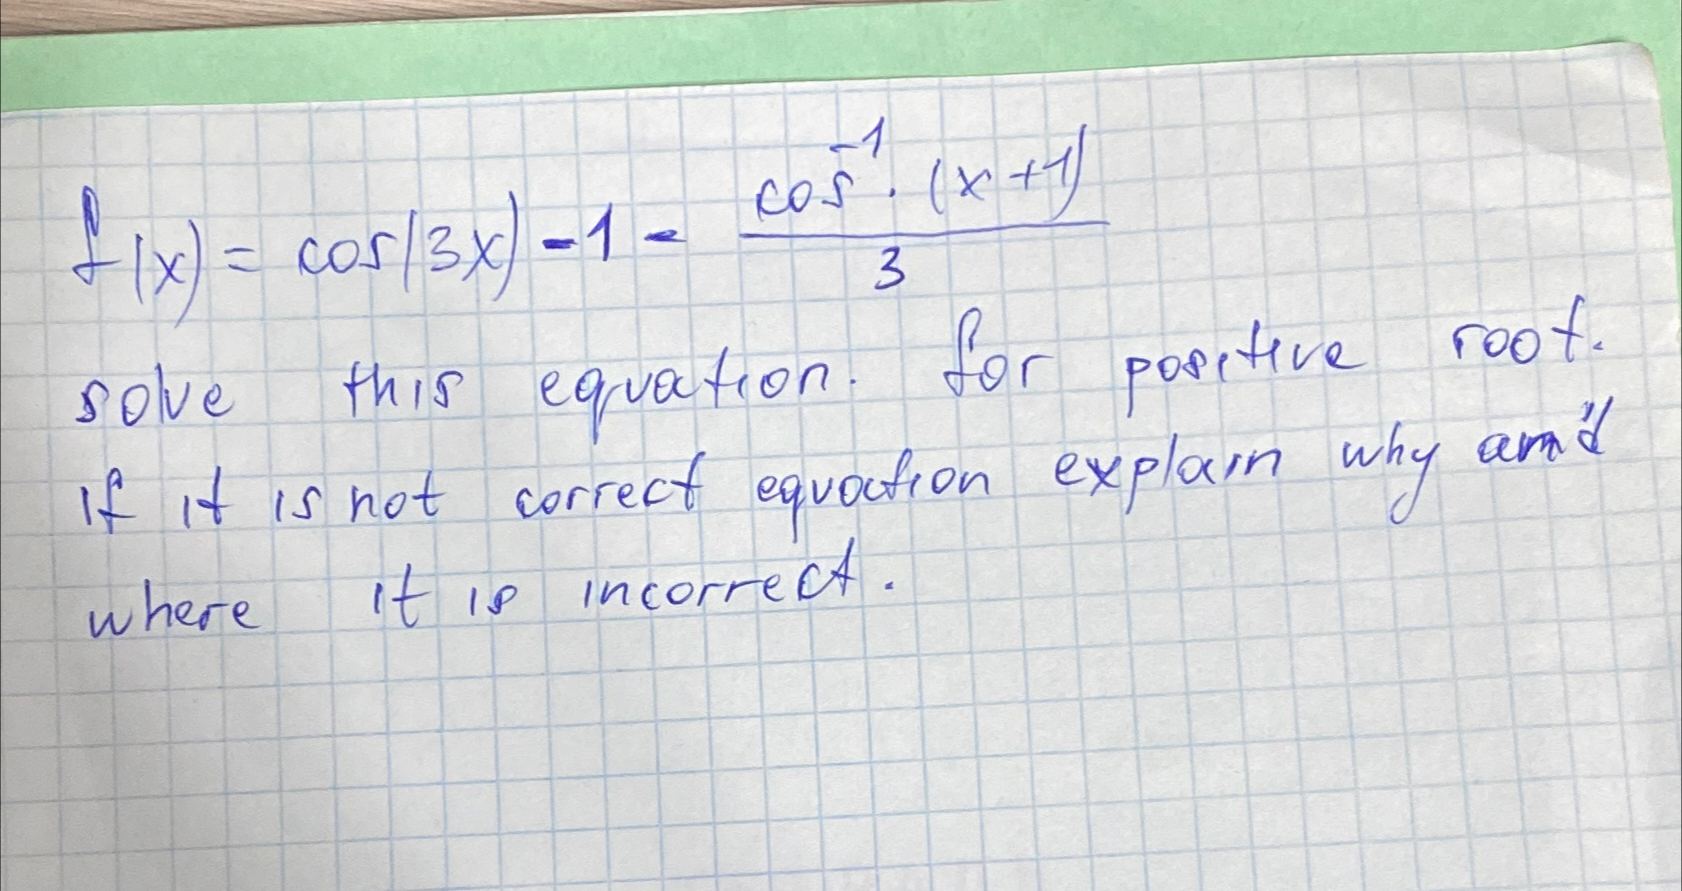 f(x) = cos(3x) - 1 - cos⁻¹ · (x+1) / 3
solve this equation. for positive root.
if it is not correct equation explain why and
where it is incorrect.